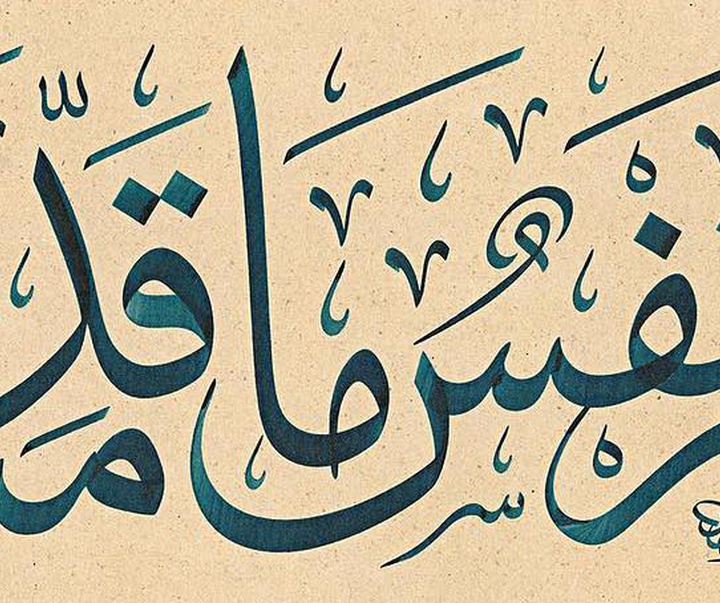 فْسٌ مَا قَدَّمَ